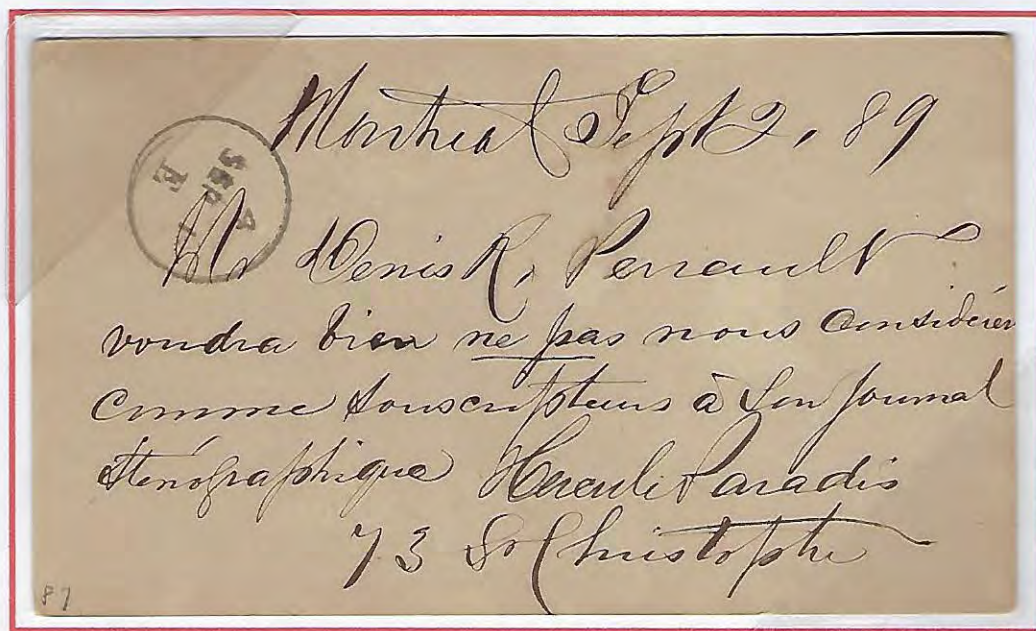 Montreal Sept 2, 89
SEP 4
E
Mr Denis R. Perrault
voudra bien ne pas nous considérer
comme souscripteurs à son journal
sténographique Hercule Paradis
73 St Christophe
87